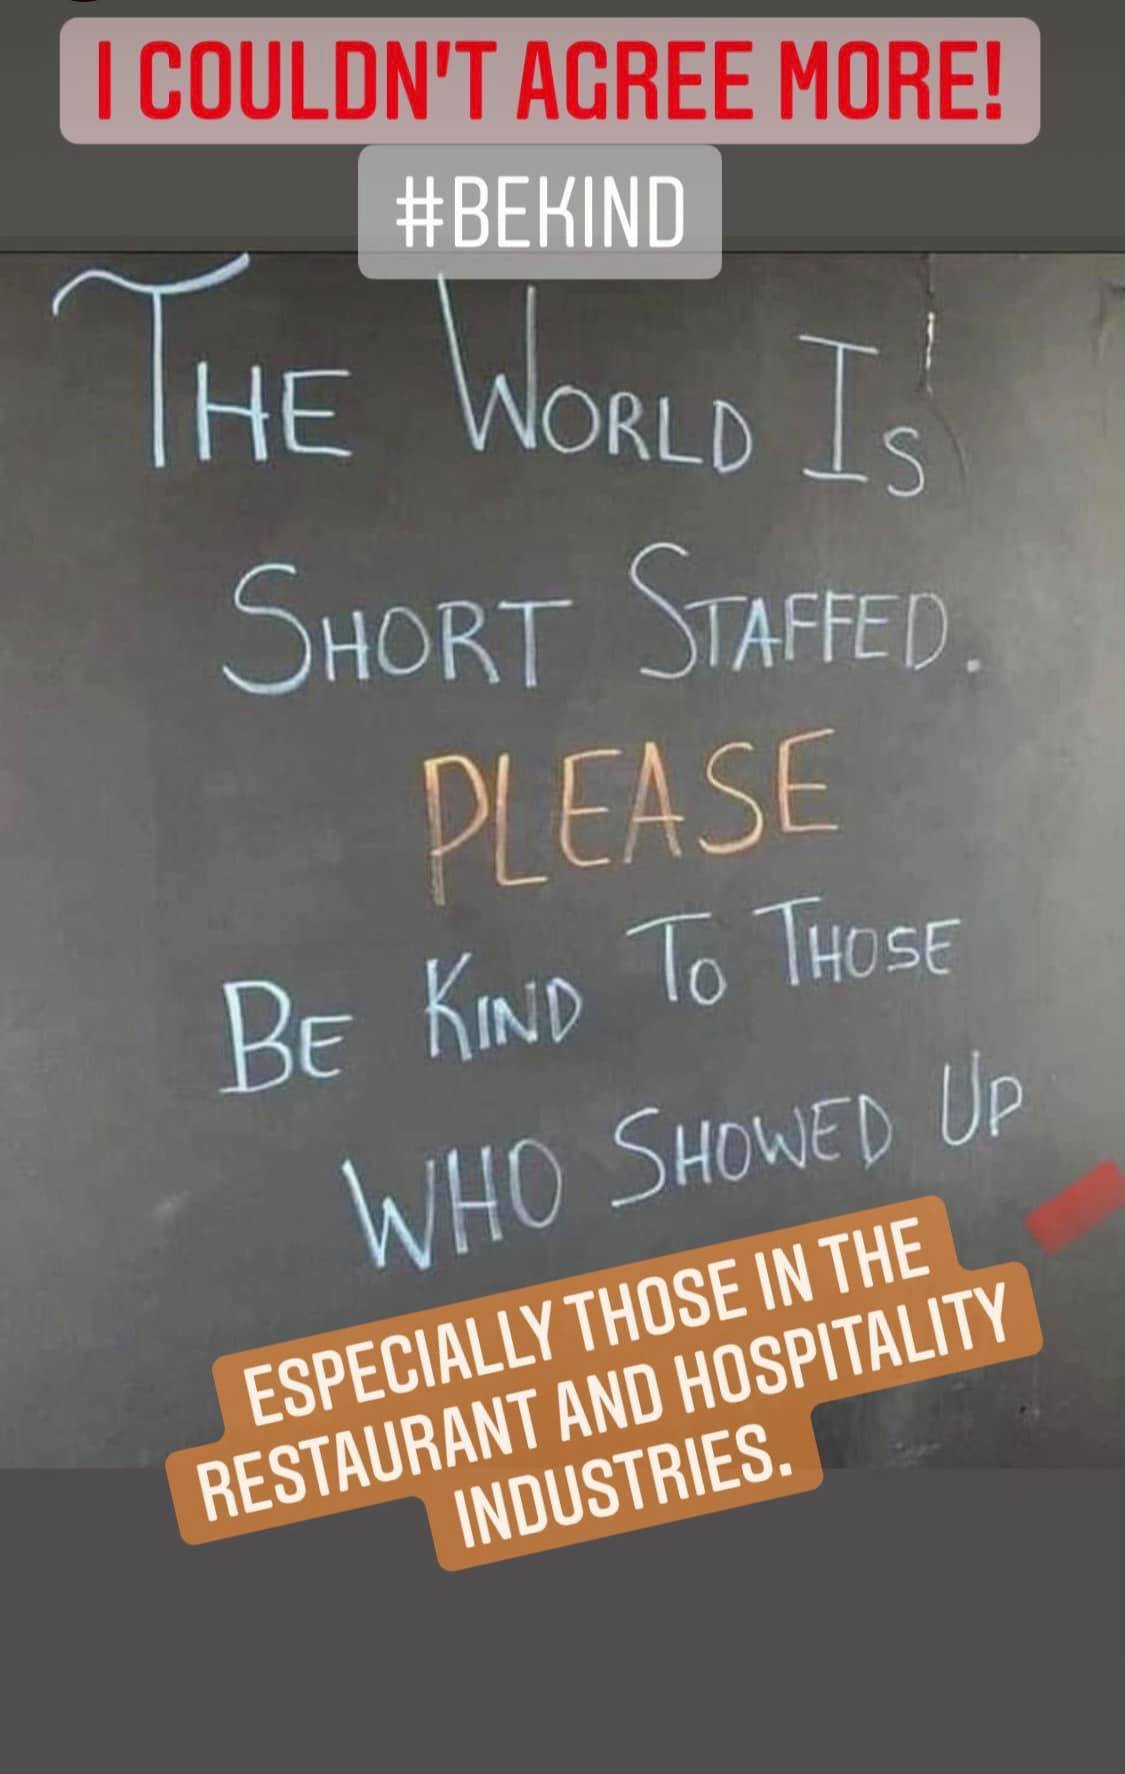 I COULDN'T AGREE MORE!
#BEKIND
THE WORLD IS
SHORT STAFFED.
PLEASE
BE KIND TO THOSE
WHO SHOWED UP
ESPECIALLY THOSE IN THE
RESTAURANT AND HOSPITALITY
INDUSTRIES.